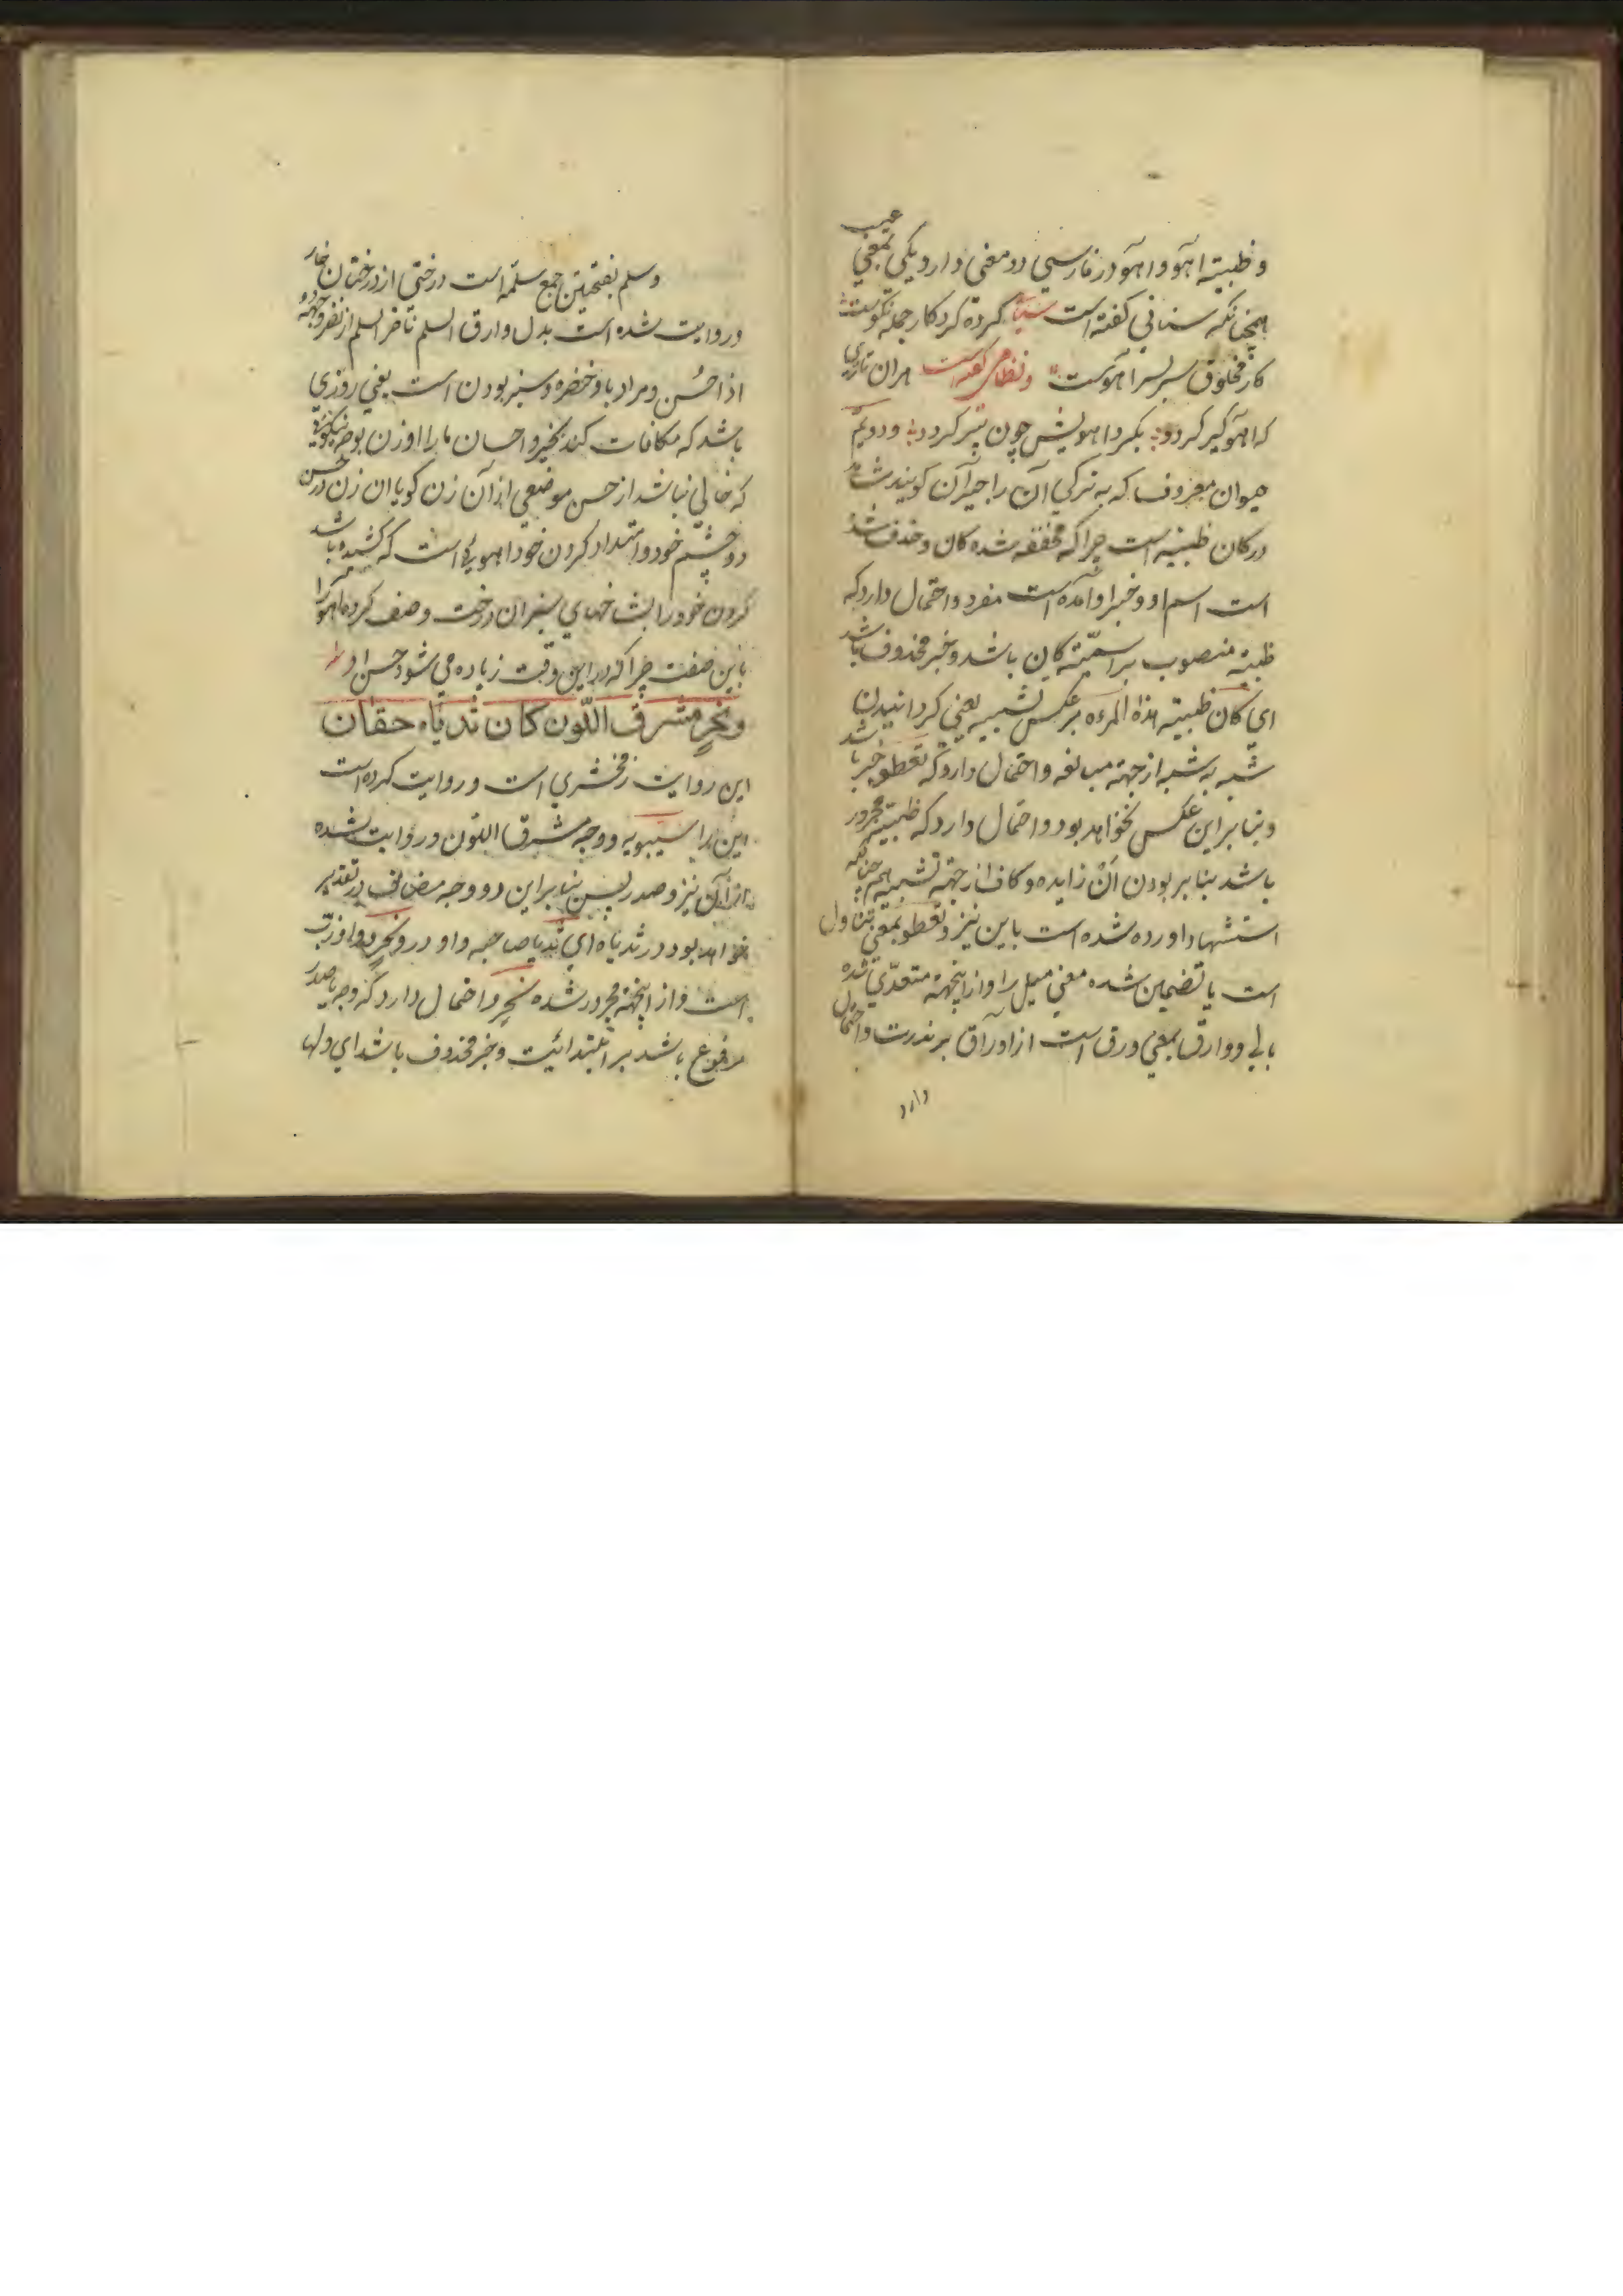 عیب
و ظبیته اهو و اهو در فارسی دو معنی دارد یکی بمعنی
همچنانکه سنائی کفته است بیت کرده کردکار جمله نکوست
کار مخلوق سربسر اهوست و نظامی کفته است هران تازی
که اهو کیر کردد بکیرد اهویش چون پیر کردد و دویم
حیوان معروف که به ترکی آن را جیران کویند شاهد
در کان ظبیته است چرا که مخففه شده کان و حذف شده
است اسم او و خبر او آمده است مفرد و احتمال دارد که
ظبیته منصوب بر اسمیّته کان باشد و خبر محذوف باشد
ای کان ظبیته هذه المرءه بر عکس تشبیه یعنی کردانیدن
شبه به شبه از جهته مبالغه و احتمال دارد که تعطو خبر باشد
و بنا بر این عکس نخواهد بود و احتمال دارد که ظبیته مجرور
باشد بنا بر بودن اَنْ زایده و کاف از جهته تشبیه همچنانکه
استشهاد اورده شده است باین نیز و تعطو بمعنی تناول
است یا تضمین شده معنی میل را و از اینجهته متعدّی شده
بالی و وارق بمعنی ورق است از اوراق بر ندرت و احتمال
دارد
و سلم بفتحتین جمع سلمه است درختی از درختان خار
و روایت شده است بدل وارق السلم ناضر السلم از نضر وجهه
اذا حسُن و مراد باو خضره و سبز بودن است یعنی روزی
باشد که مکافات کند بخیر و احسان ما را او زن بوجه نیکوئی
که خالی نباشد از حسن موضعی از آن زن کویا ان زن در حسن
دو چشم خود و امتداد کردن خود اهویی است که کشیده باشد
کردن خود را بشاخهای سبز ان درخت وصف کرده اهو را
باین صفت چرا که در این وقت زیاده می شود حسن او
ونحرٍ مشرق اللّون کان ثدیاه حقان
این روایت زمخشری است و روایت کرده است
این را سیبویه و وجه مشرق اللون و روایت شده
از آن نیز و صدر پس بنا بر این دو وجه مضاف در تقدیر
خواهد بود در ثدیاه ای ثدیا صاحبه و او در و نحرٍ واو ربّ
است و از اینجهته مجرور شده نحرٍ و احتمال دارد که وجه یا صدر
مرفوع باشد بر ابتدائیت و خبر محذوف باشد ای ولها